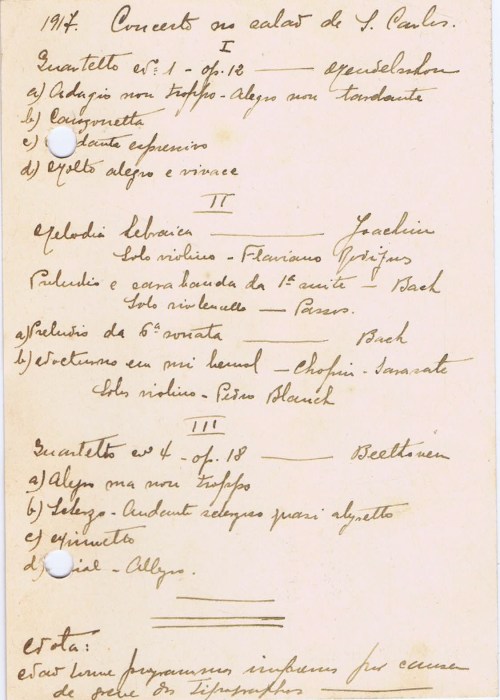 1917. Concerto no salão de S. Carlos.
I
Quartetto nº 1 - op. 12 — Mendelsshon
a) Adagio non troppo - Alegro non tardante
b) Canzonetta
c) dante expressivo
d) Molto alegro e vivace
II
Melodia Hebraica — Joachim
Solo violino - Flaviano Rodrigues
Preludio e sarabanda da 1ª suite — Bach
Solo violoncello — Passos.
a) Preludio da 6ª sonata — Bach
b) Nocturno em mi bemol — Chopin - Sarasate
Solos violino - Pedro Blanch
III
Quartetto nº 4 - op. 18 — Beethoven
a) Alegro ma non troppo
b) Scherzo - Andante scherzoso quasi alegretto
c) Minuetto
d) ial - Allegro.
Nota:
Não houve programmas impressos por causa
da greve dos Tipographos